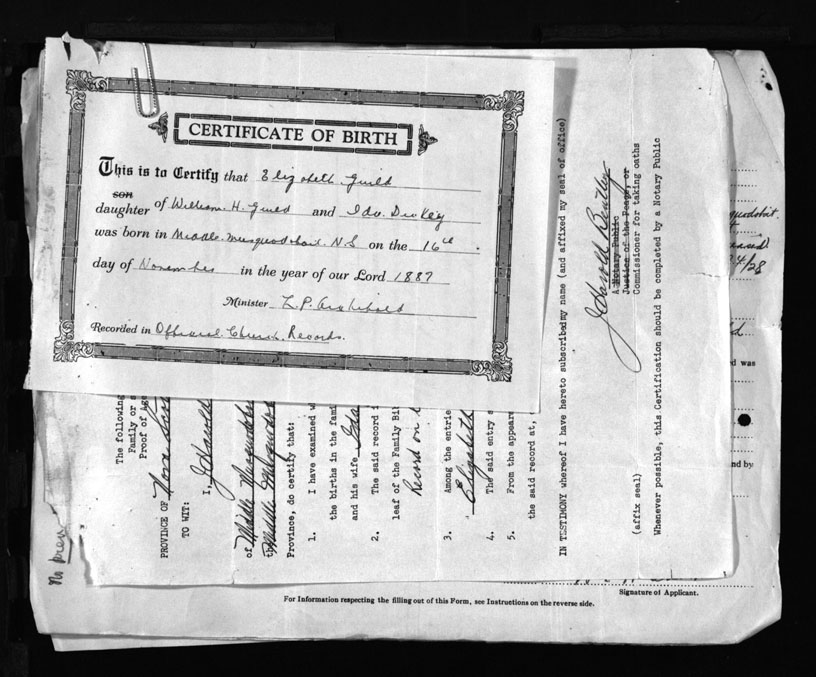 CERTIFICATE OF BIRTH
This is to Certify that Elizabeth Guild
son
daughter of William. H. Guild and Ida. Dickey
was born in Middle. Musquodoboit. N.S on the 16th
day of November in the year of our Lord 1887
Minister L.P. Archibald
Recorded in Official. Church. Records.
The following
Family or s
Proof of Age
PROVINCE OF Nova
TO WIT:
I, J Harold
of Middle Musquodoboit
th Middle Musquodoboit
Province, do certify that:
1. I have examined w
the births in the fami
and his wife Ida
2. The said record i
leaf of the Family Bi
Record on
3. Among the entrie
Elizabeth
4. The said entry s
5. From the appeara
the said record at,
IN TESTIMONY whereof I have hereto subscribed my name (and affixed my seal of office)
J Harold Bentley
A Notary Public
Justice of the Peace, or
Commissioner for taking oaths
(affix seal)
Whenever possible, this Certification should be completed by a Notary Public
4/28
d was
nd by
No
Signature of Applicant.
For Information respecting the filling out of this Form, see Instructions on the reverse side.